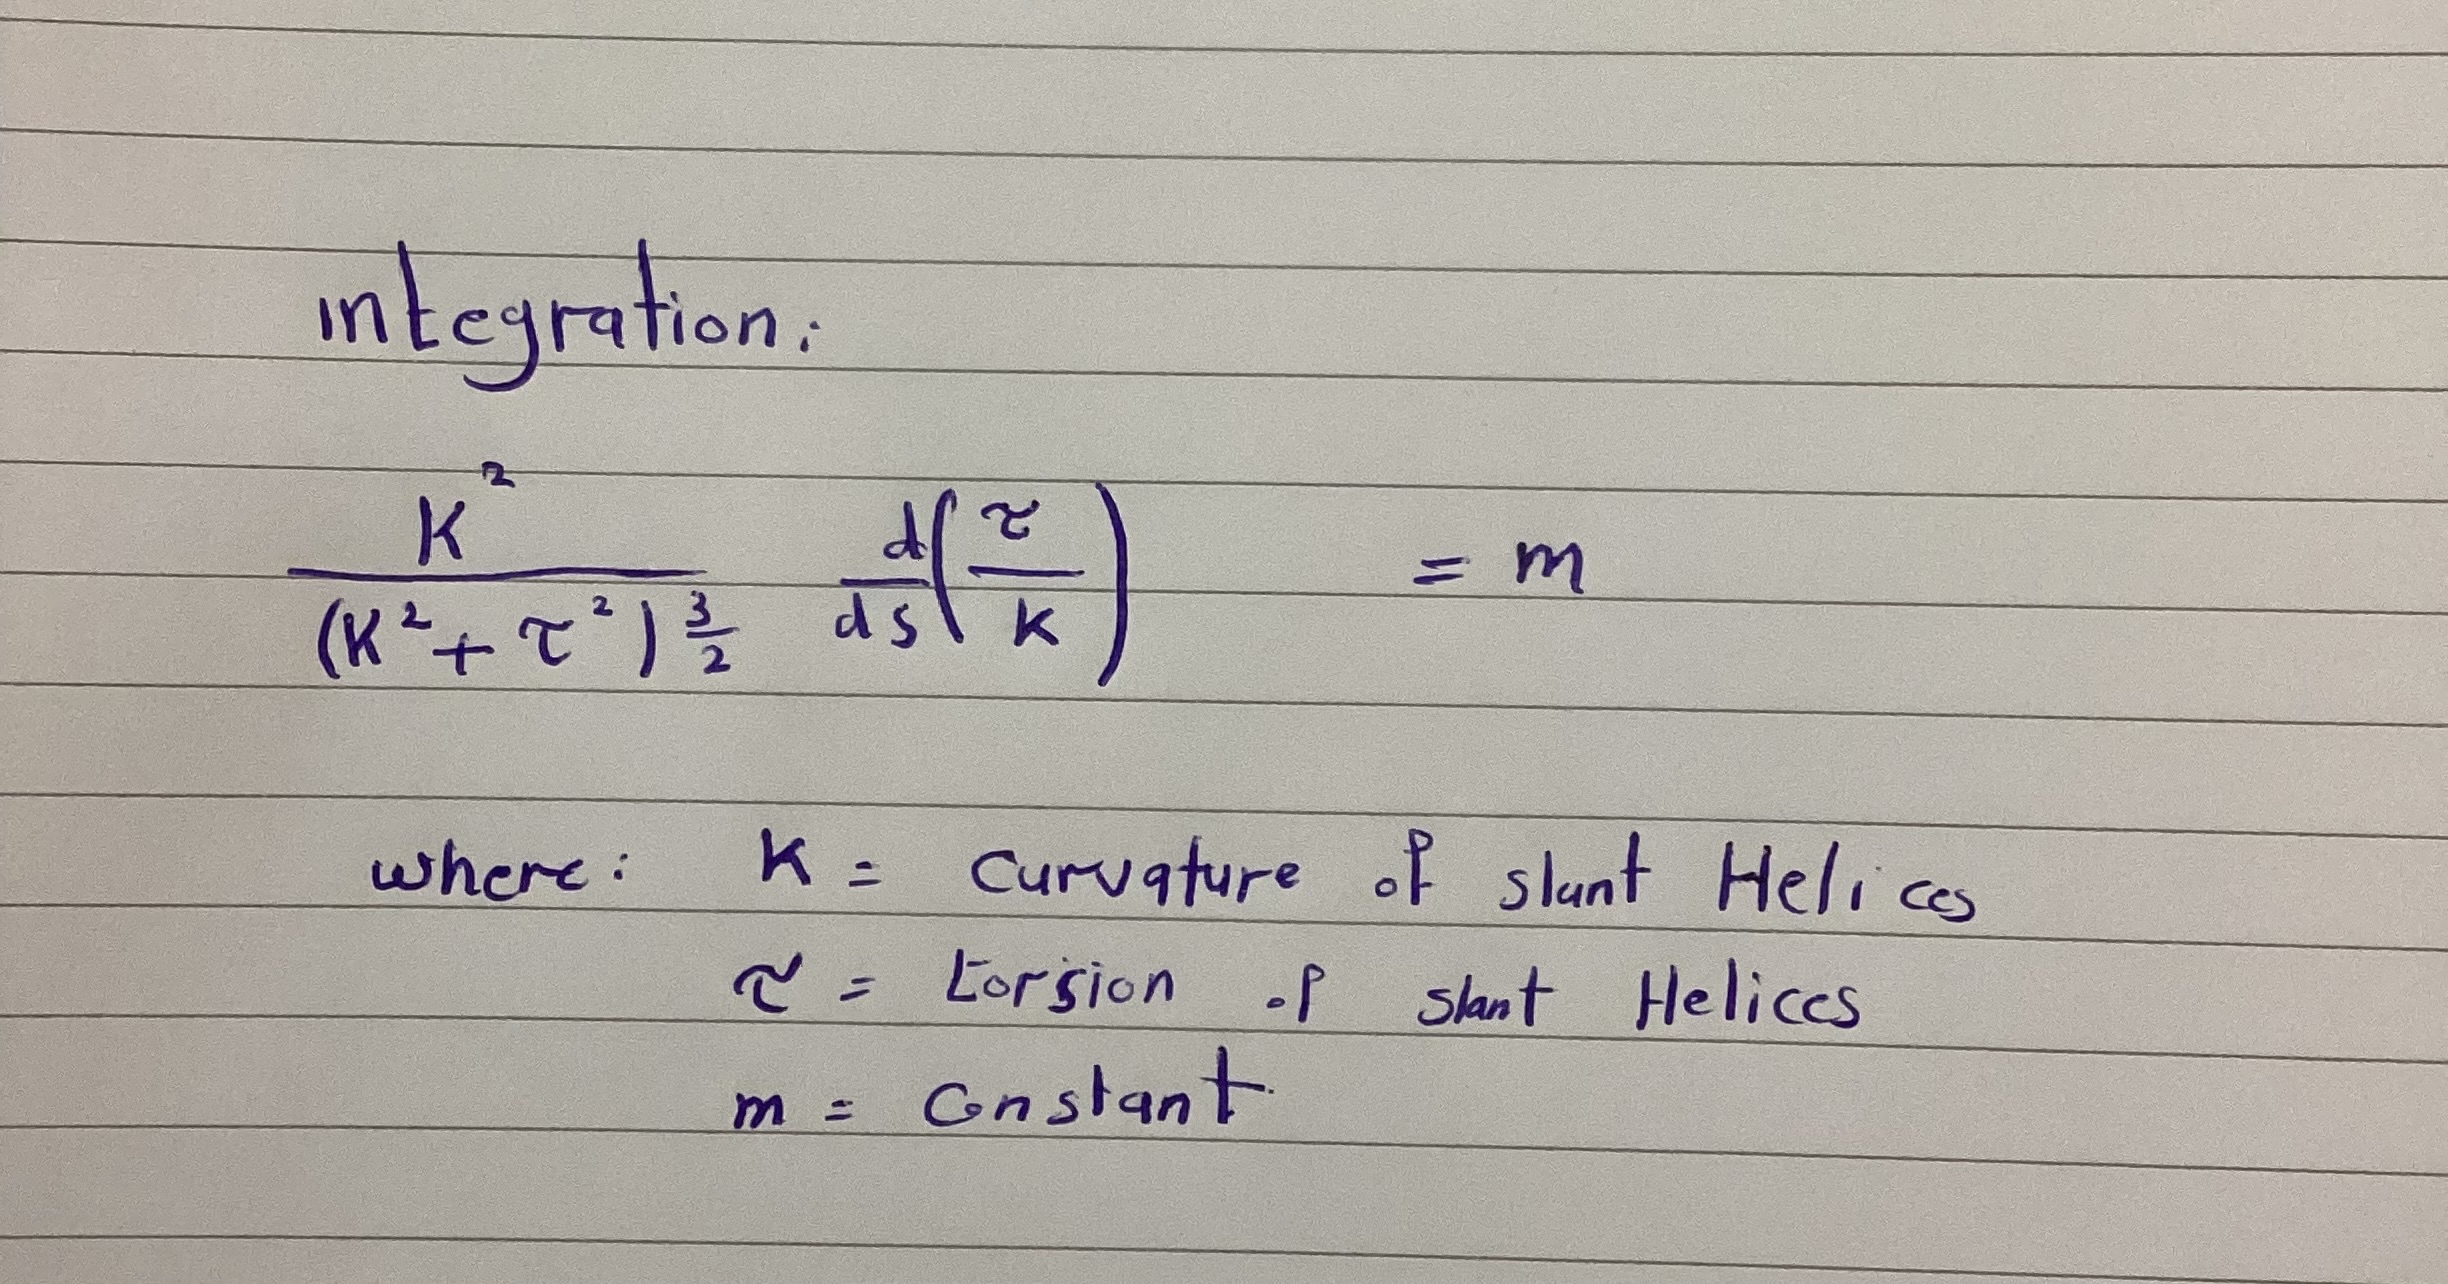 integration:
K² / (K² + τ²)^(3/2) d/ds (τ / K) = m
where: K = Curvature of slant Helices
τ = torsion of slant Helices
m = Constant